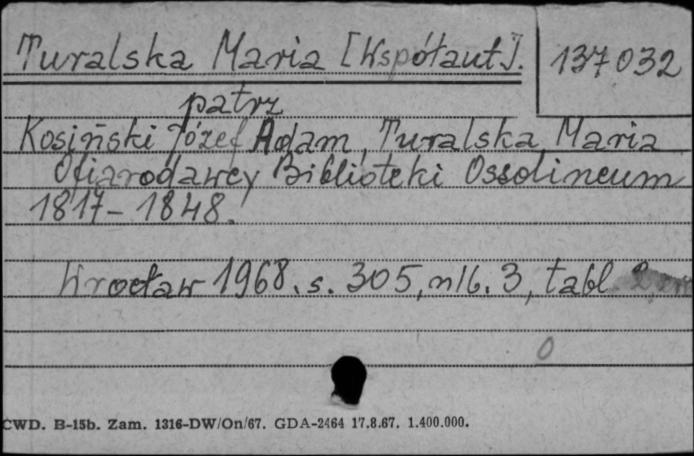 Turalska Maria [Współaut.].
137 032
patrz
Kosiński Józef Adam, Turalska Maria
Ofiarodawcy Biblioteki Ossolineum
1817-1848.
Wrocław 1968. s. 305, nlb. 3, tabl. 2,
0
CWD. B-15b. Zam. 1316-DW/On/67. GDA-2464 17.8.67. 1.400.000.